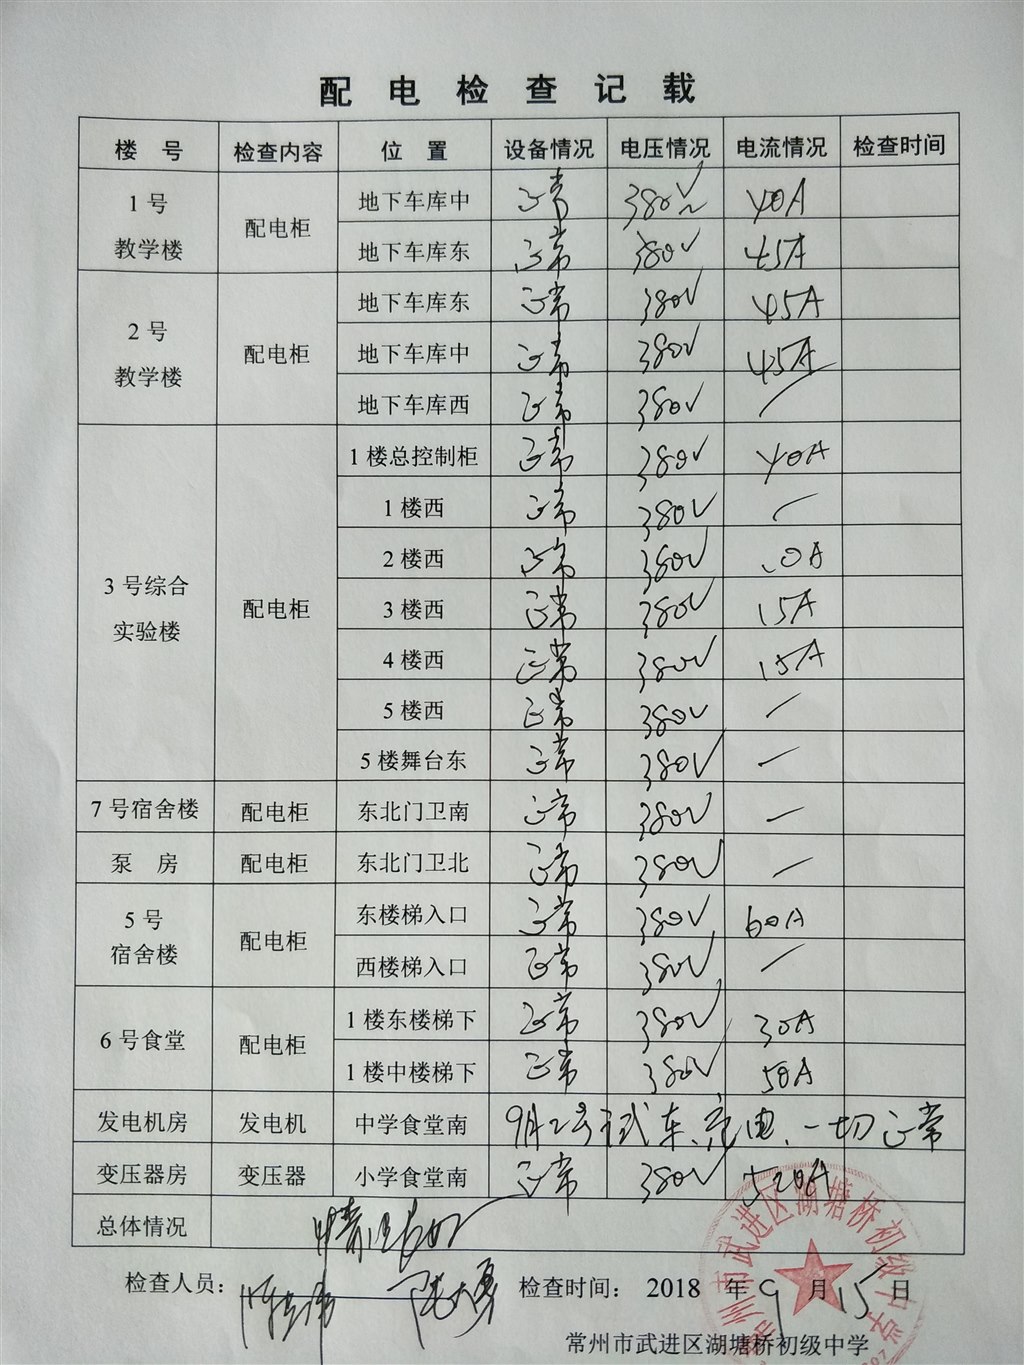 配电检查记载
楼号 检查内容 位置 设备情况 电压情况 电流情况 检查时间
1号教学楼 配电柜 地下车库中 正常 380V 40A
地下车库东 正常 380V 45A
2号教学楼 配电柜 地下车库东 正常 380V 45A
地下车库中 正常 380V 45A
地下车库西 正常 380V /
3号综合实验楼 配电柜 1楼总控制柜 正常 380V 40A
1楼西 正常 380V /
2楼西 正常 380V
3楼西 正常 380V 15A
4楼西 正常 380V 15A
5楼西 正常 380V /
5楼舞台东 正常 380V /
7号宿舍楼 配电柜 东北门卫南 正常 380V /
泵房 配电柜 东北门卫北 正常 380V /
5号宿舍楼 配电柜 东楼梯入口 正常 380V 60A
西楼梯入口 正常 380V /
6号食堂 配电柜 1楼东楼梯下 正常 380V 30A
1楼中楼梯下 正常 380V 50A
发电机房 发电机 中学食堂南 9月2号试车、充电、一切正常
变压器房 变压器 小学食堂南 正常 380V 520A
总体情况 情况良好
检查人员： 检查时间： 2018 年 9 月 15 日
常州市武进区湖塘桥初级中学
常州市武进区湖塘桥初级中学